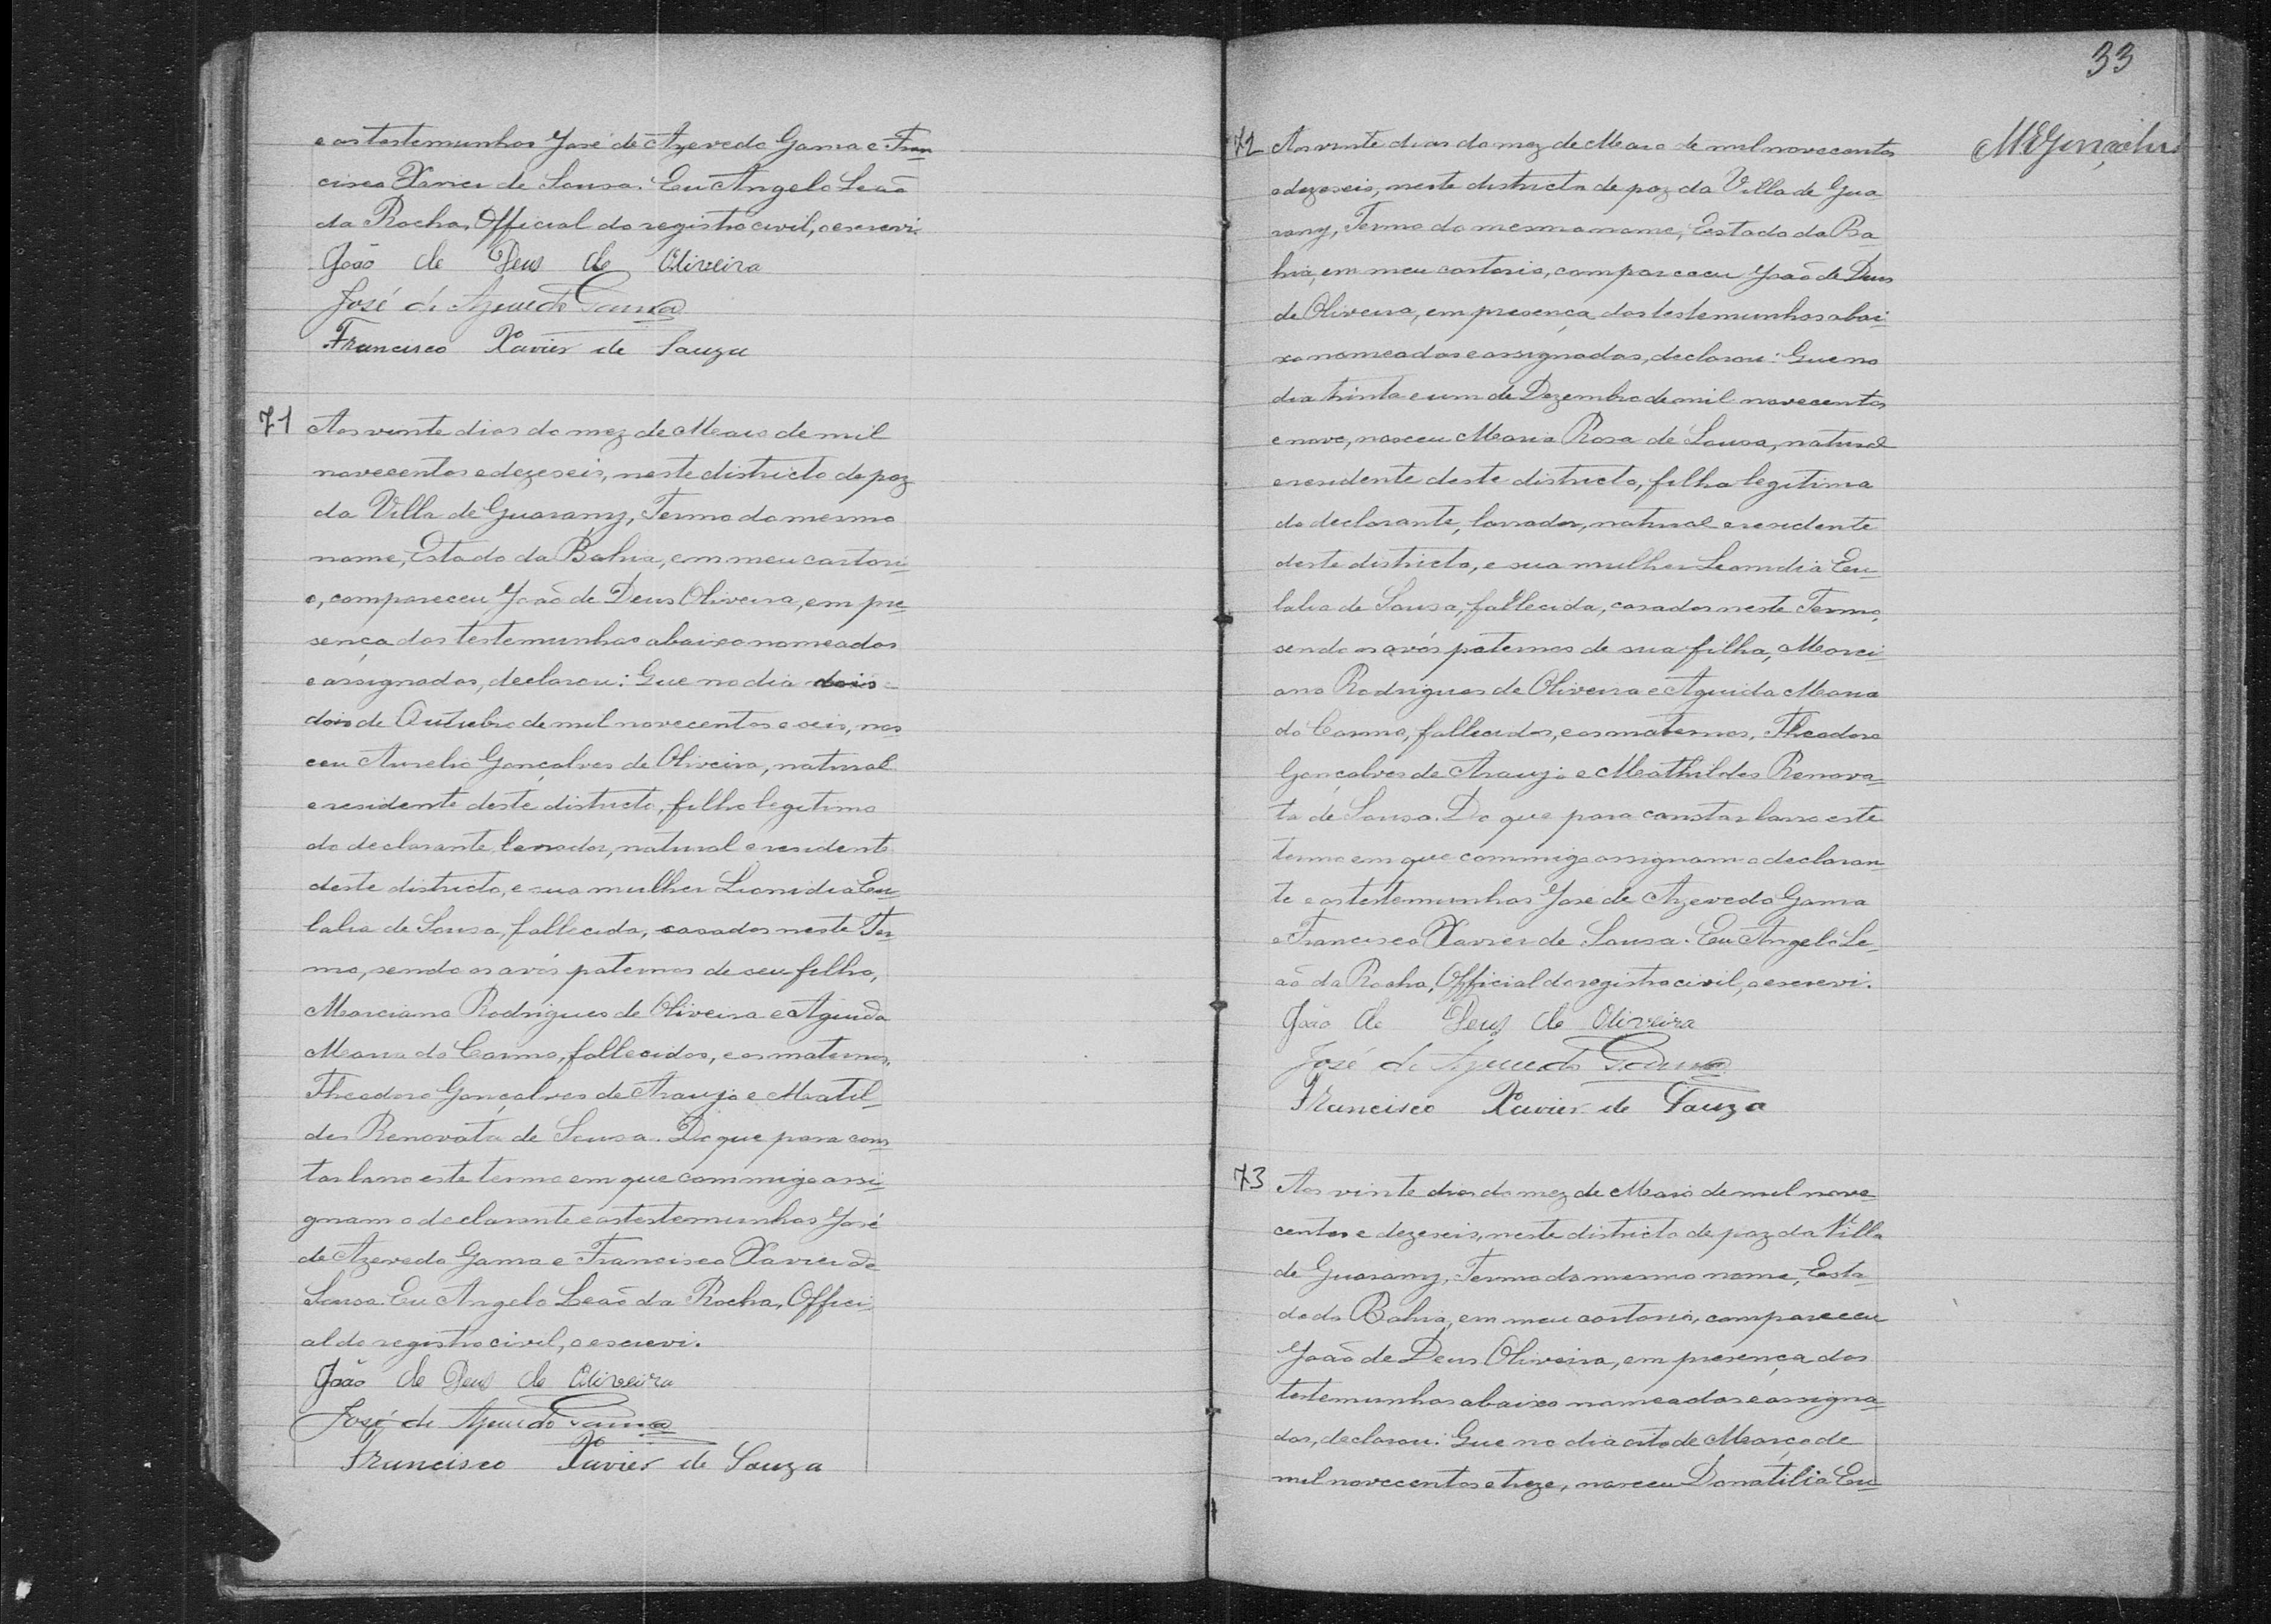 e as testemunhas José de Azevedo Gama e Fran
cisco Xavier de Sousa. Eu Angelo Leaõ
da Rocha, Official do registro civil, o escrevi.
João de Deus de Oliveira
José de Azevedo Gama
Francisco Xavier de Souza
71 Aos vinte dias do mez de Maio de mil
novecentos e dezeseis, neste districto de paz
da Villa de Guarany, Termo do mesmo
nome, Estado da Bahia, em meu cartori-
o, compareceu Joaõ de Deus Oliveira, em pre-
sença das testemunhas abaixo nomeadas
e assignadas, declarou: Que no dia dois
dois de Outubro de mil novecentos e seis, nas
ceu Aurelio Gonçalves de Oliveira, natural
e residente deste districto, filho legitimo
do declarante, lavrador, natural e residente
deste districto, e sua mulher Leonidia Eu-
lalia de Sousa, fallecida, casados neste Ter-
mo, sendo os avós paternos de seu filho,
Marciano Rodrigues de Oliveira e Aguida
Maria do Carmo, fallecidos, e os maternos,
Theodoro Gonçalves de Araujo e Matil-
des Renovata de Sousa. Do que para cons
tar lavro este termo em que commigo assi-
gnam o declarante e as testemunhas José
de Azevedo Gama e Francisco Xavier de
Sousa. Eu Angelo Leaõ da Rocha, Offici-
al do registro civil, o escrevi.
João de Deus de Oliveira
José de Azevedo Gama
Francisco Xavier de Souza
33
72 Aos vinte dias do mez de Maio de mil novecentos
e dezeseis, neste districto de paz da Villa de Gua
rany, Termo do mesmo nome, Estado da Ba-
hia, em meu cartorio, compareceu Joaõ de Deus
de Oliveira, em presença das testemunhas abai-
xo nomeadas e assignadas, declarou: Que no
dia trinta e um de Dezembro de mil novecentos
e nove, nasceu Maria Rosa de Sousa, natural
e residente deste districto, filha legitima
do declarante, lavrador, natural e residente
deste districto, e sua mulher Leonidia Eu-
lalia de Sousa, fallecida, casados neste Termo,
sendo os avós paternos de sua filha, Marci-
ano Rodrigues de Oliveira e Aguida Maria
do Carmo, fallecidos, e os maternos, Theodoro
Gonçalves de Araujo e Mathildes Renova-
ta de Sousa. Do que para constar lavro este
termo em que commigo assignam o declaran-
te e as testemunhas José de Azevedo Gama
e Francisco Xavier de Sousa. Eu Angelo Le-
aõ da Rocha, Official do registro civil, o escrevi.
João de Deus de Oliveira
José de Azevedo Gama
Francisco Xavier de Souza
73 Aos vinte dias do mez de Maio de mil nove-
centos e dezeseis, neste districto de paz da Villa
de Guarany, Termo do mesmo nome, Esta-
do da Bahia, em meu cartorio, compareceu
Joaõ de Deus Oliveira, em presença das
testemunhas abaixo nomeadas e assigna-
das, declarou: Que no dia oito de Março de
mil novecentos e treze, nasceu Donatilia Eu-